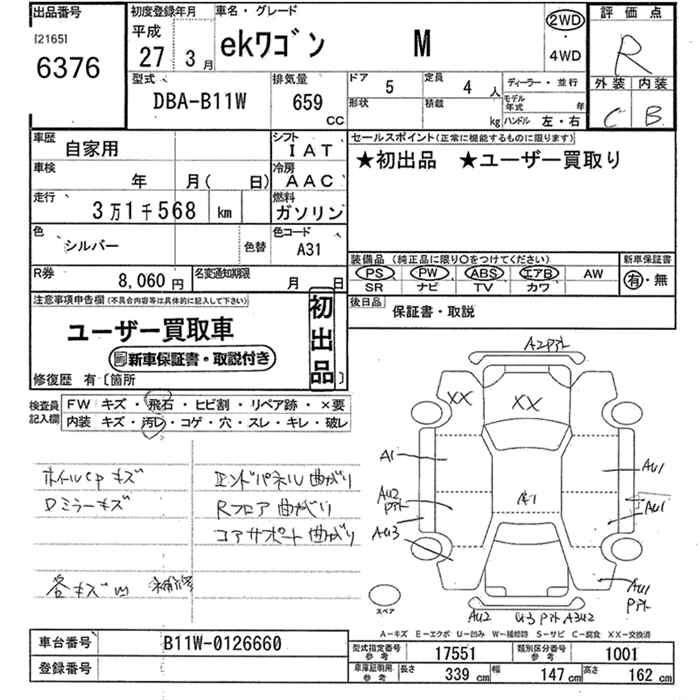 出品番号
[2165]
6376
初度登録年月
平成
27年 3月
車名・グレード
ekワゴン M
2WD
・
4WD
評価点
R
外装 内装
C B
型式
DBA-B11W
排気量
659
CC
ドア
5
定員
4人
形状
積載
kg
ディーラー・並行
モデル年式 年
ハンドル 左・右
車歴
自家用
シフト
IAT
車検
年 月( 日)
冷房
AAC
走行
3万1千568 km
燃料
ガソリン
色
シルバー
色替
色コード
A31
R券
8,060円
名変通知期限
月 日
セールスポイント(正常に機能するものに限ります)
★初出品 ★ユーザー買取り
装備品(純正品に限り○をつけてください)
PS PW ABS エアB AW
SR ナビ TV カワ
新車保証書
有・無
後日品
保証書・取説
注意事項申告欄(不具合内容等は具体的に記入して下さい)
ユーザー買取車
新車保証書・取説付き
初出品
修復歴 有〔箇所 〕
検査員記入欄
FW キズ・飛石・ヒビ割・リペア跡・×要
内装 キズ・汚レ・コゲ・穴・スレ・キレ・破レ
ホイルcpキズ
Dミラーキズ
エンドパネル曲がり
Rフロア曲がり
コアサポート曲がり
A2
XX
XX
A1
AU1
AU2
A1
AU1
AU3
AU1
AU2
U3
A3U2
スペア
A－キズ E－エクボ U－凹み W－補修跡 S－サビ C－腐食 XX－交換済
車台番号
B11W-0126660
登録番号
型式指定番号 参考
17551
類別区分番号 参考
1001
車庫証明用 参考
長さ
339 cm
幅
147 cm
高さ
162 cm